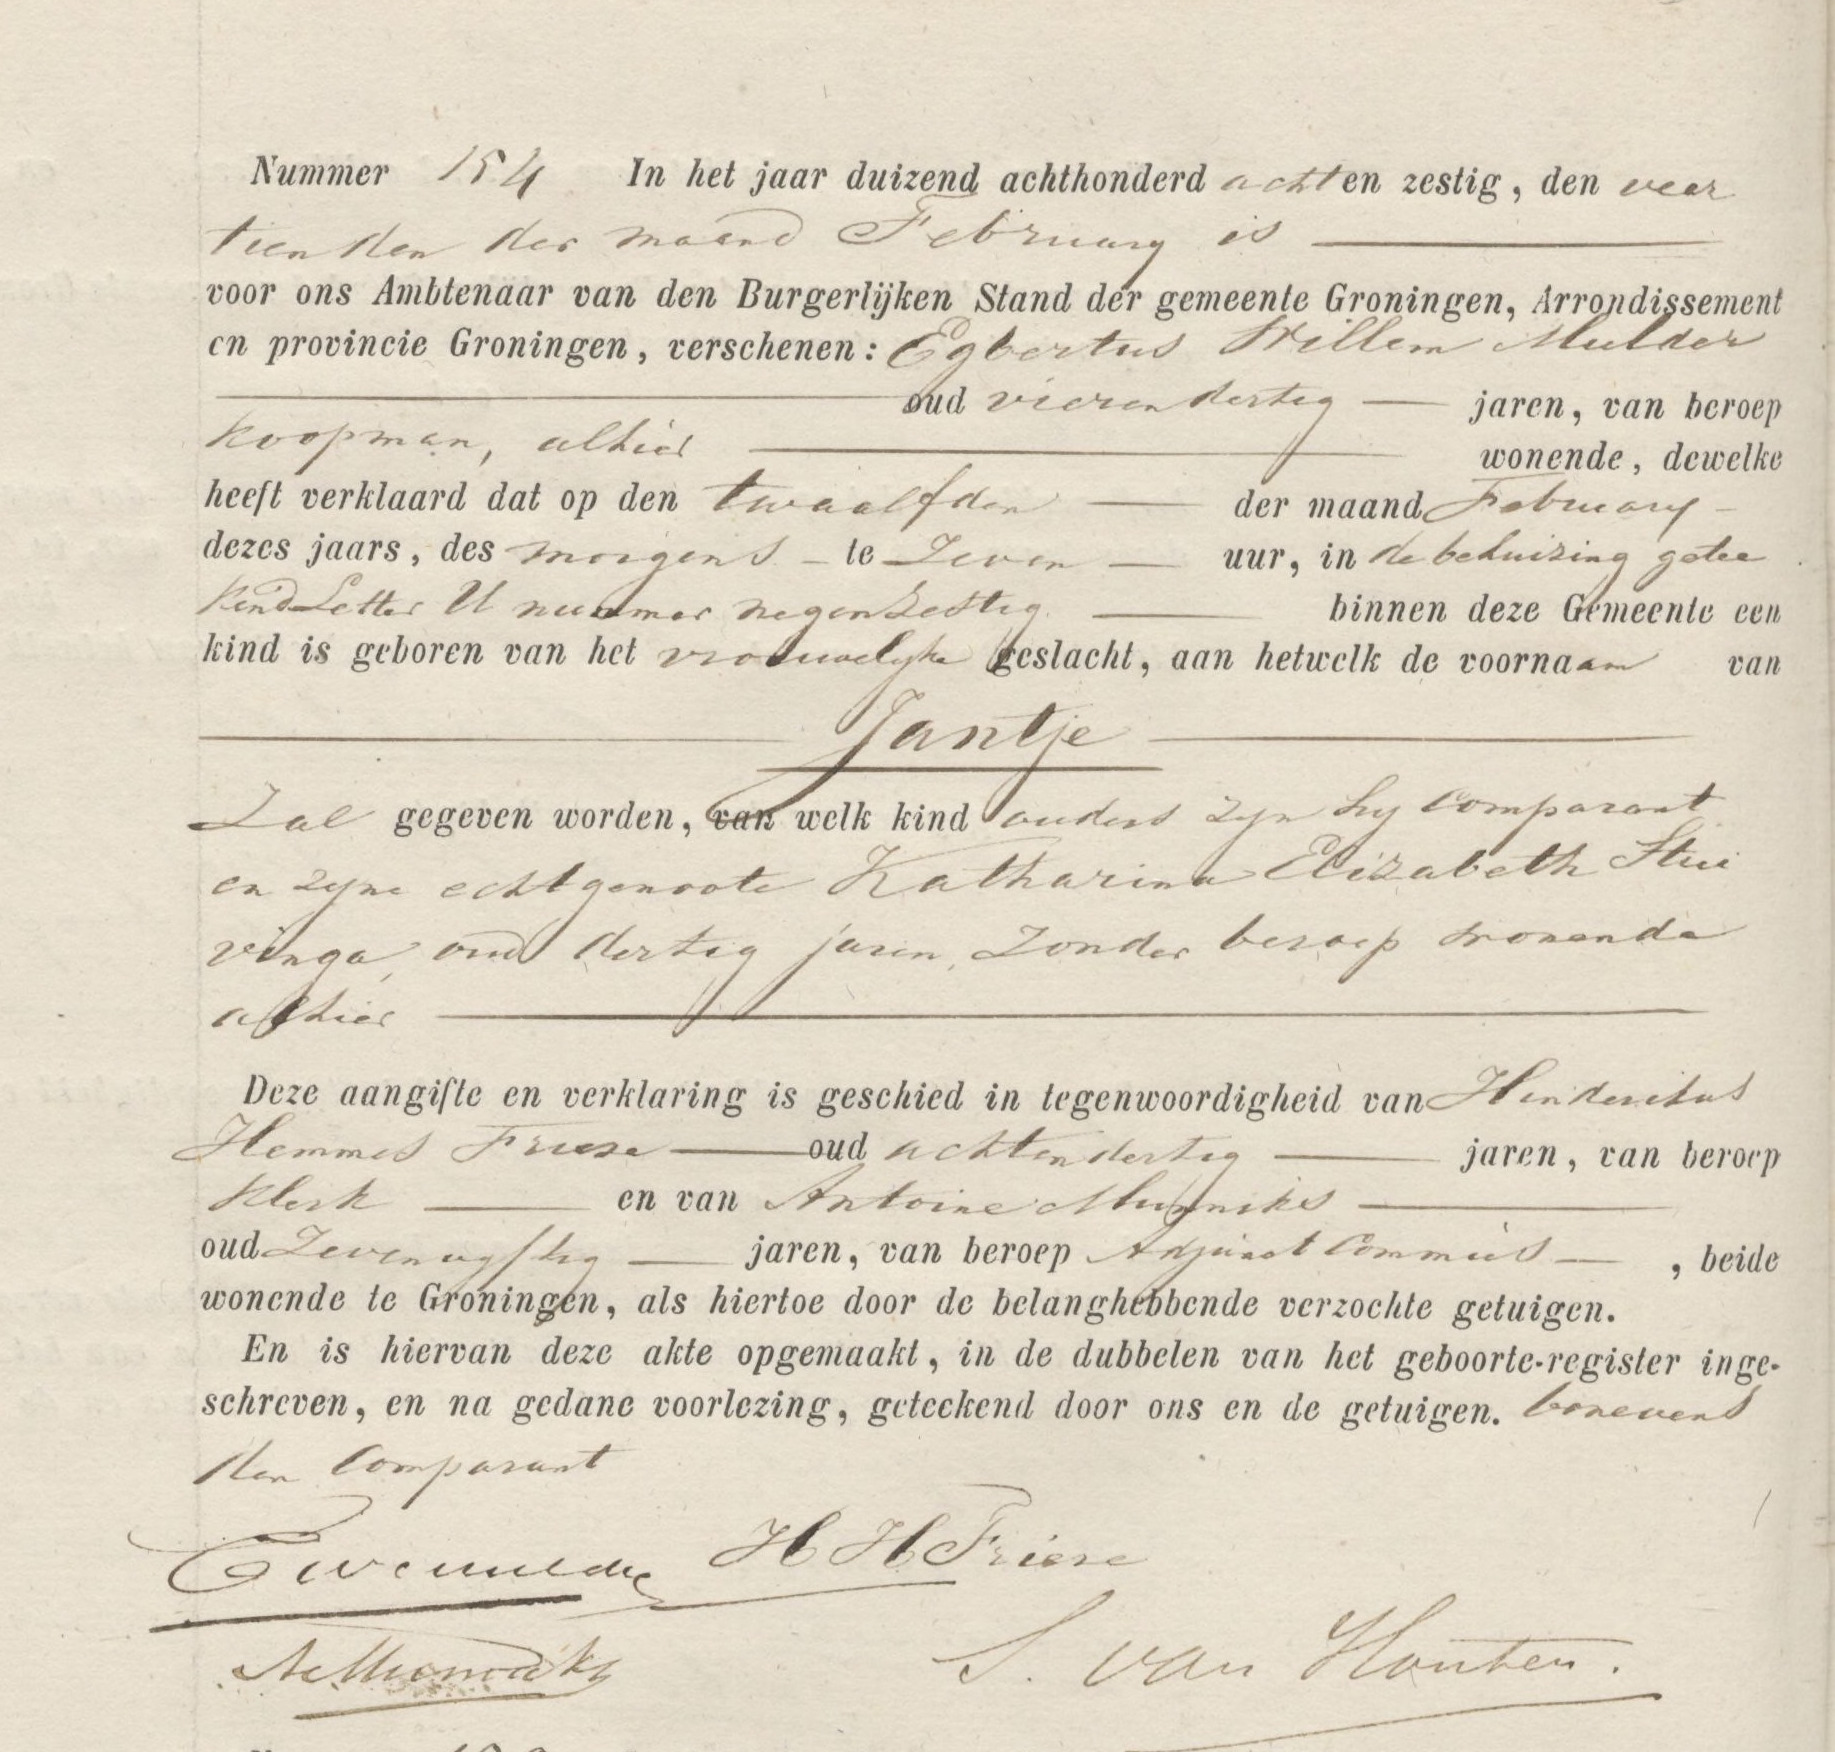 Nummer 154 In het jaar duizend achthonderd achten zestig, den veer
tienden der maand February is
voor ons Ambtenaar van den Burgerlijken Stand der gemeente Groningen, Arrondissement
en provincie Groningen, verschenen: Egbertus Willem Mulder
oud vierendertig jaren, van beroep
koopman, alhier wonende, dewelke
heeft verklaard dat op den twaalfden der maand February
dezes jaars, des morgens te Zeven uur, in de behuizing getee
kend Letter U nummer negenzestig binnen deze Gemeente een
kind is geboren van het vrouwelyke geslacht, aan hetwelk de voornaam van
Jantje
Zal gegeven worden, van welk kind ouders zyn hy Comparant
en zyne echtgenoote Katharina Elizabeth Stui
vinga, oud dertig jaren, Zonder beroep wonende
alhier
Deze aangifte en verklaring is geschied in tegenwoordigheid van Hindericus
Hemmes Friese oud achtendertig jaren, van beroep
Klerk en van Antoine Munniks
oud Zevenvyftig jaren, van beroep Adjunct Commies, beide
wonende te Groningen, als hiertoe door de belanghebbende verzochte getuigen.
En is hiervan deze akte opgemaakt, in de dubbelen van het geboorte-register inge-
schreven, en na gedane voorlezing, geteekend door ons en de getuigen. benevens
den Comparant
EWMulder HHFriese
AMunniks S. van Houten.